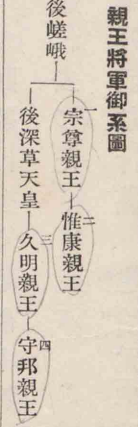 親王將軍御系圖
後嵯峨
一
宗尊親王
二
惟康親王
後深草天皇
三
久明親王
四
守邦親王